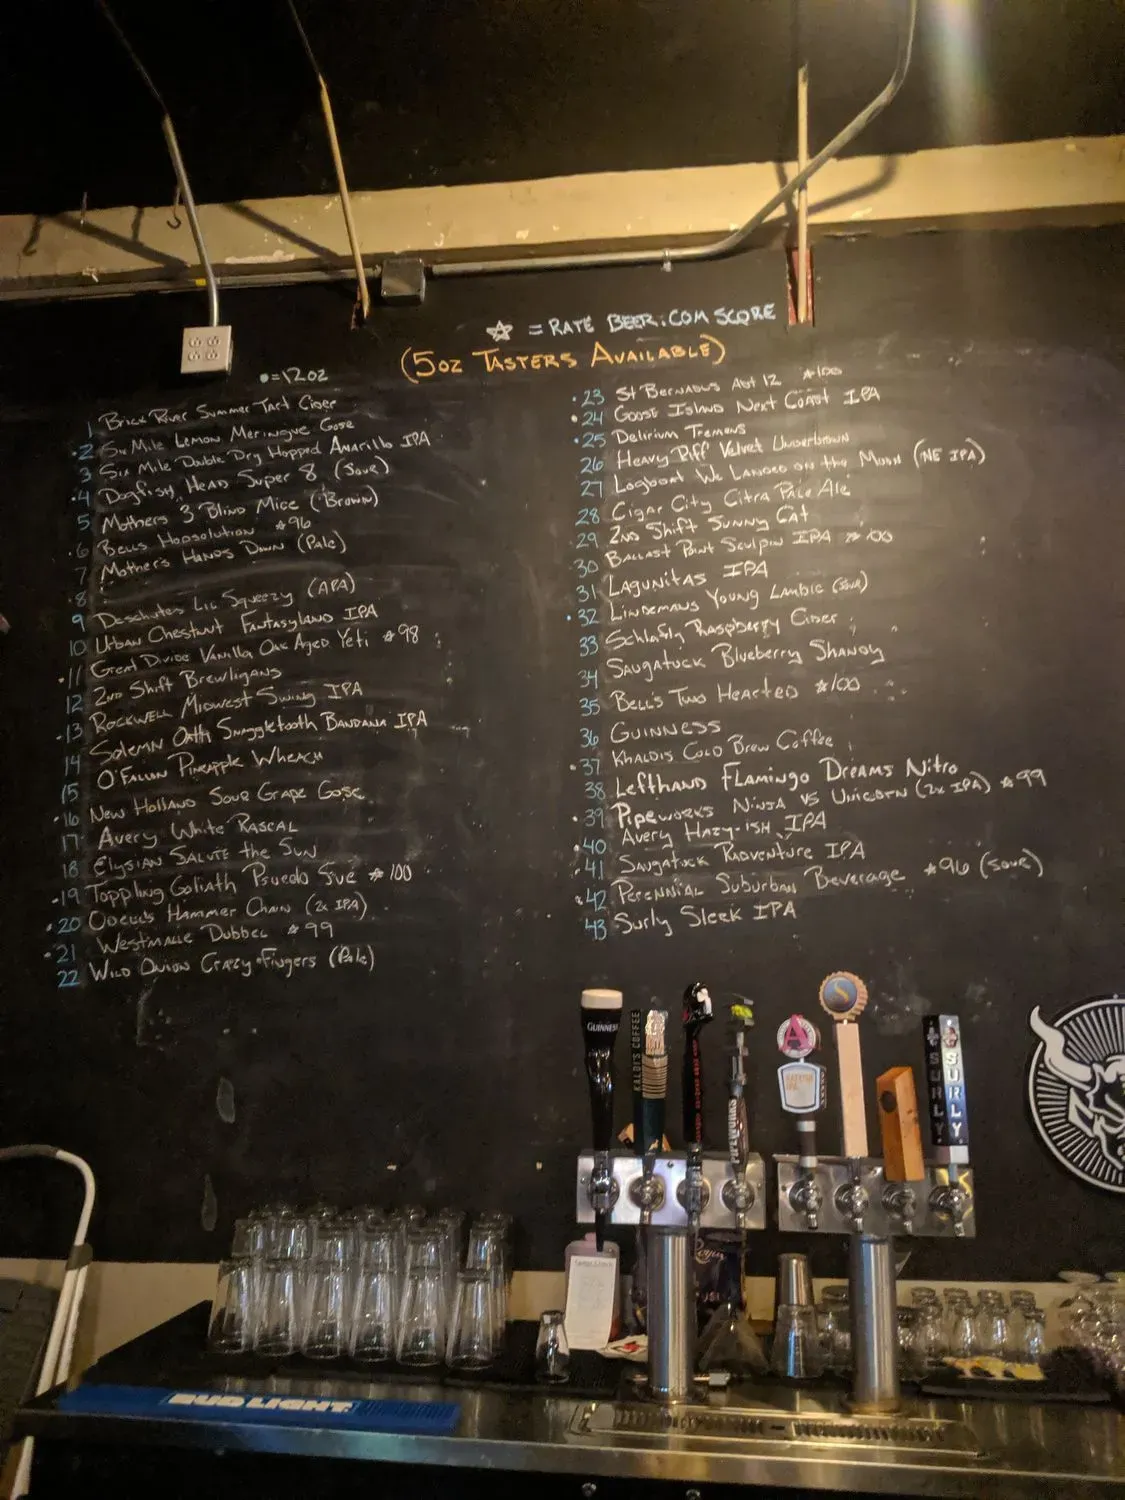 ☆ = RATE BEER.COM SCORE
(5oz TASTERS AVAILABLE)
•=12oz
1 Brick River Summer Tart Cider
•2 Six Mile Lemon Meringue Gose
3 Six Mile Double Dry Hopped Amarillo IPA
•4 Dogfish Head Super 8 (Sour)
5 Mothers 3 Blind Mice (Brown)
•6 Bells Hopsolution ☆96
7 Mother's Hands Down (Pale)
•8
9 Deschutes Lil Squeezy (APA)
10 Urban Chestnut Fantasyland IPA
•11 Great Divide Vanilla Oak Aged Yeti ☆98
12 2nd Shift Brewligans
•13 Rockwell Midwest Swing IPA
14 Solemn Oath Snaggletooth Bandana IPA
15 O'Fallon Pineapple Wheach
•16 New Holland Sour Grape Gose
17 Avery White Rascal
18 Elysian Salute the Sun
•19 Toppling Goliath Psuedo Sue ☆100
•20 Odell's Hammer Chain (2x IPA)
•21 Westmalle Dubbel ☆99
22 Wild Onion Crazy Fingers (Pale)
•23 St Bernadus Abt 12 ☆100
•24 Goose Island Next Coast IPA
•25 Delirium Tremens
26 Heavy Riff Velvet Underbrown
27 Logboat We Landed on the Moon (NE IPA)
28 Cigar City Citra Pale Ale
29 2nd Shift Sunny Cat
30 Ballast Point Sculpin IPA ☆100
31 Lagunitas IPA
•32 Lindemans Young Lambic (Sour)
33 Schlafly Raspberry Cider
34 Saugatuck Blueberry Shandy
35 Bell's Two Hearted ☆100
36 Guinness
•37 Khaldis Cold Brew Coffee
38 Lefthand Flamingo Dreams Nitro
•39 Pipeworks Ninja vs Unicorn (2x IPA) ☆99
•40 Avery Hazy-ish IPA
•41 Saugatuck Radventure IPA
•42 Perennial Suburban Beverage ☆96 (Sour)
43 Surly Sleek IPA
GUINNESS
KALDI'S COFFEE
PIPEWORKS
A
S
SURLY
SURLY
BUD LIGHT